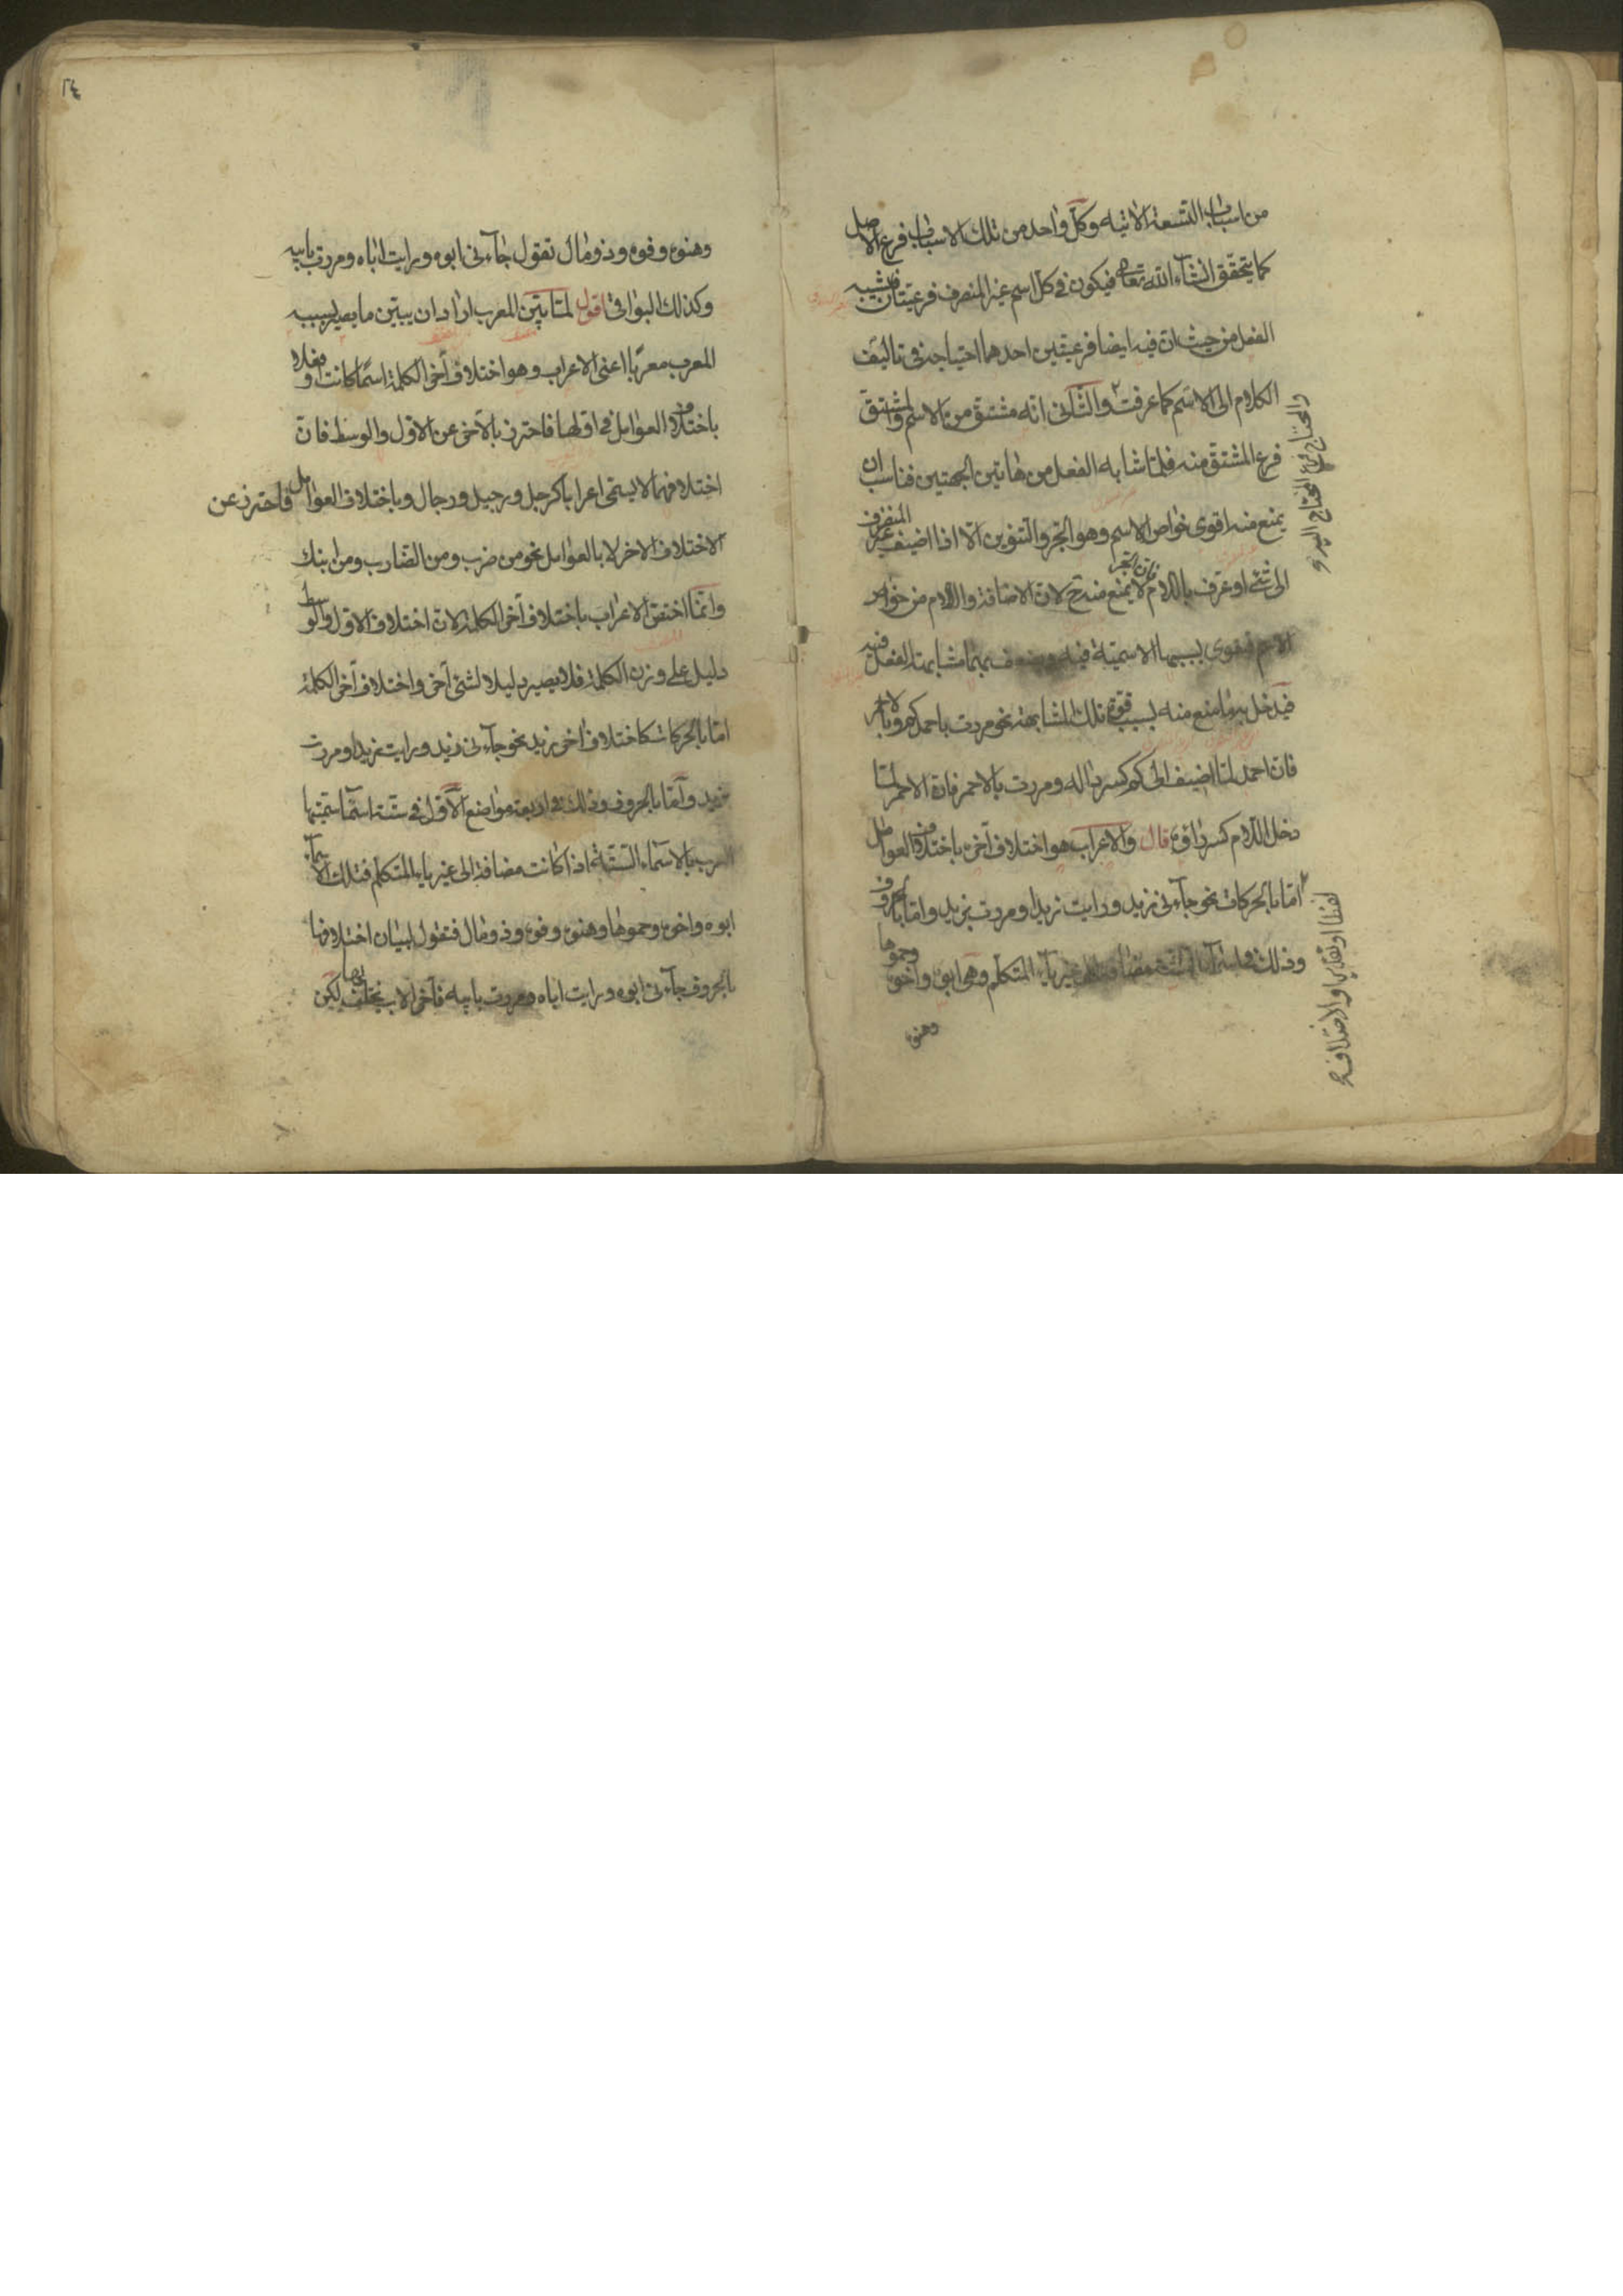 من اسباب التسعة الاتية وكل واحد من تلك الاسباب فرع الاصل
كما يتحقق انشاء الله تعالى فيكون في كل اسم غير المنصرف فرعيتان فيشبه
الفعل من حيث ان فيه ايضا فرعيتين احدهما احتياجه في تاليف
الكلام الى الاسم كما عرفت والثاني انه مشتق من الاسم والمشتق
فرع المشتق منه فلما شابه الفعل من هاتين الجهتين فناسب ان
يمنع منه اقوى خواص الاسم وهو الجر والتنوين الا اذا اضيف غير المنصرف
الى شئ او عرف باللام فان الجر لا يمنع منه ح لان الاضافة واللام من خواص
الاسم فيقوى بسببها الاسمية فيه ويضعف بهما مشابهته الفعل فيه
فيدخل بهما منع منه بسبب قوة تلك المشابهة نحو مررت باحمدكم وبالاحمر
فان احمد لما اضيف الى كم كسر داله ومررت بالاحمر فان الاحمر لما
دخل اللام كسر راؤه قال والاعراب هو اختلاف آخره باختلاف العوامل
اما بالحركات نحو جآءني زيد ورايت زيدا ومررت بزيد واما بالحروف
وذلك في مضافة الى غير يآء المتكلم وهي ابوه واخوه وحموها
وهنوه
والمحتاج فرع المحتاج اليه
لفظا او تقديرا والاختلاف
٢٤
وهنوه وفوه وذو مال تقول جآءني ابوه ورايت اباه ومررت بابيه
وكذلك البواقي اقول لما بين المعرب اراد ان يبين ما يصير بسببه
المعرب معربا اعني الاعراب وهو اختلاف آخر الكلمة اسما كانت او فعلا
باختلاف العوامل في اولها فاحترز بالآخر عن الاول والوسط فان
اختلافهما لا يسمى اعرابا كرجل ورجيل ورجال وباختلاف العوامل فاحترز عن
الاختلاف الآخر لا بالعوامل نحو من ضرب ومن الضارب ومن ابنك
وانما اختص الاعراب باختلاف آخر الكلمة لان اختلاف الاول والوسط
دليل على وزن الكلمة فلا يصير دليلا لشئ آخر واختلاف آخر الكلمة
اما بالحركات كاختلاف آخر زيد نحو جآءني زيد ورايت زيدا ومررت
بزيد واما بالحروف وذلك في اربعة مواضع الاول في ستة اسما ستميتها
العرب بالاسماء الستة اذا كانت مضافة الى غير ياء المتكلم فتلك الاسمآء
ابوه واخوه وحموها وهنوه وفوه وذو مال فتقول لبيان اختلافها
بالحروف جآءني ابوه ورايت اباه ومررت بابيه فآخر الاب يختلف بها لكن